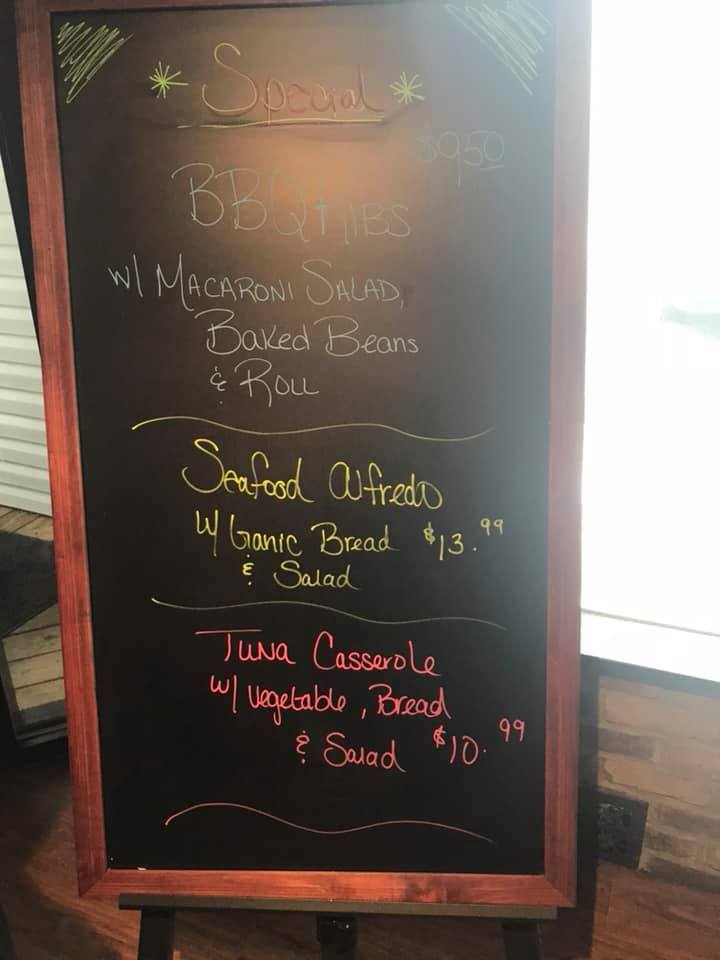 * Special *
$9.50
BBQ Ribs
w/ Macaroni Salad,
Baked Beans
& Roll
Seafood Alfredo
w/ Garlic Bread $13.99
& Salad
Tuna Casserole
w/ Vegetable, Bread
& Salad $10.99